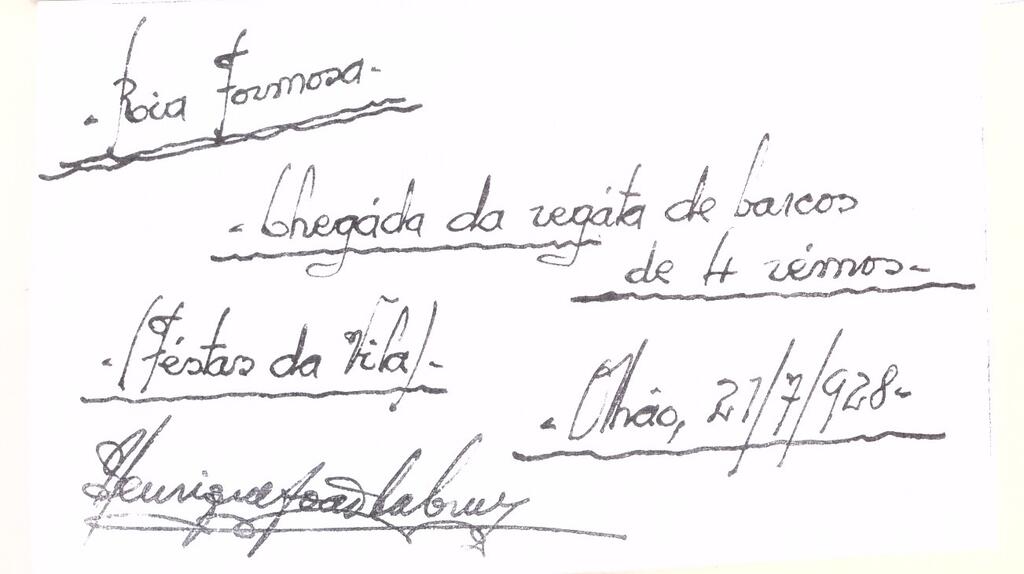 - Roia Formosa -
- Chegáda da regáta de barcos
de 4 rémos -
- (Féstas da Vila) -
- Olhão, 21/7/928 -
Henrique João